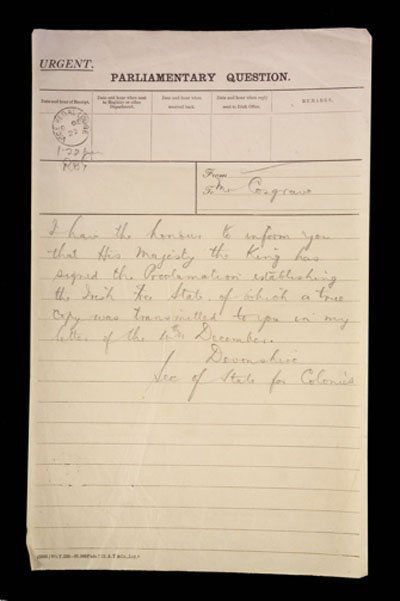 URGENT.
PARLIAMENTARY QUESTION.
Date and hour of Receipt.
Date and hour when sent to Registry or other Department.
Date and hour when received back.
Date and hour when reply sent to Irish Office.
REMARKS.
From
To Mr Cosgrave
I have the honour to inform you
that His Majesty the King has
signed the Proclamation establishing
the Irish Free State, of which a true
copy was transmitted to you in my
letter of the December.
Devonshire
Sec of State for Colonies